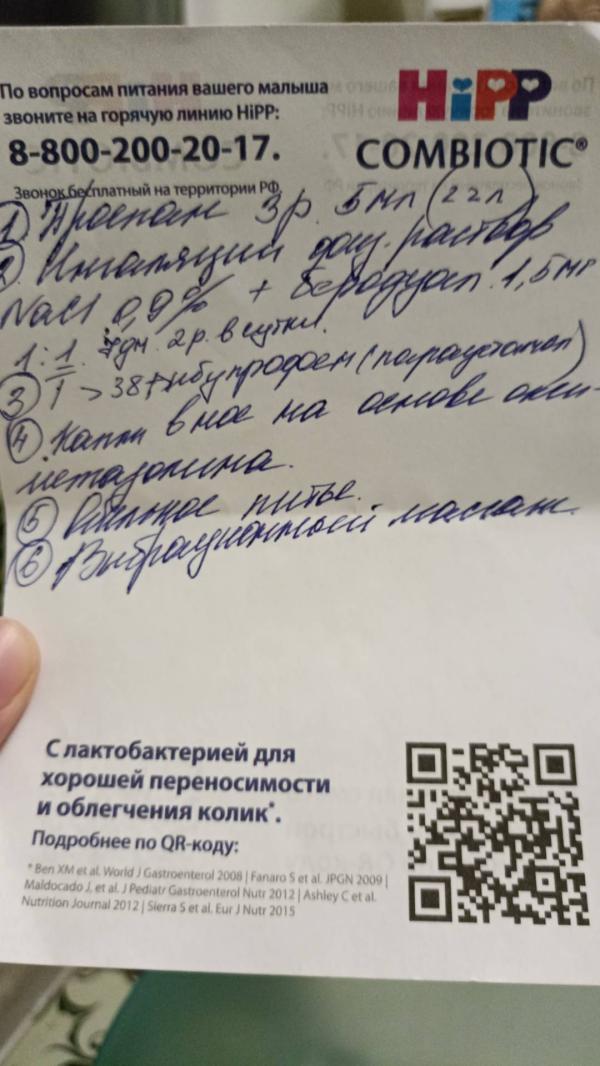 По вопросам питания вашего малыша
звоните на горячую линию HiPP:
8-800-200-20-17.
Звонок бесплатный на территории РФ.
HiPP
COMBIOTIC®
① Проспан 3р. 5мл
2. Ингаляции раствор
NaCl 0,9% + Беродуал 1,5мг
1:1. 7дн. 2р. в сутки.
③ T > 38 + ибупрофен (парацетамол)
④ Капли в нос на основе окси-
метазолина.
⑤ Обильное питье.
⑥ Вибрационный массаж.
С лактобактерией для
хорошей переносимости
и облегчения колик*.
Подробнее по QR-коду:
* Ben XM et al. World J Gastroenterol 2008 | Fanaro S et al. JPGN 2009 |
Maldocado J, et al. J Pediatr Gastroenterol Nutr 2012 | Ashley C et al.
Nutrition Journal 2012 | Sierra S et al. Eur J Nutr 2015